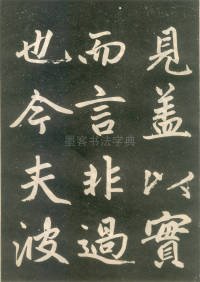 見蓋以實
而言非過
也今夫波
墨客书法字典